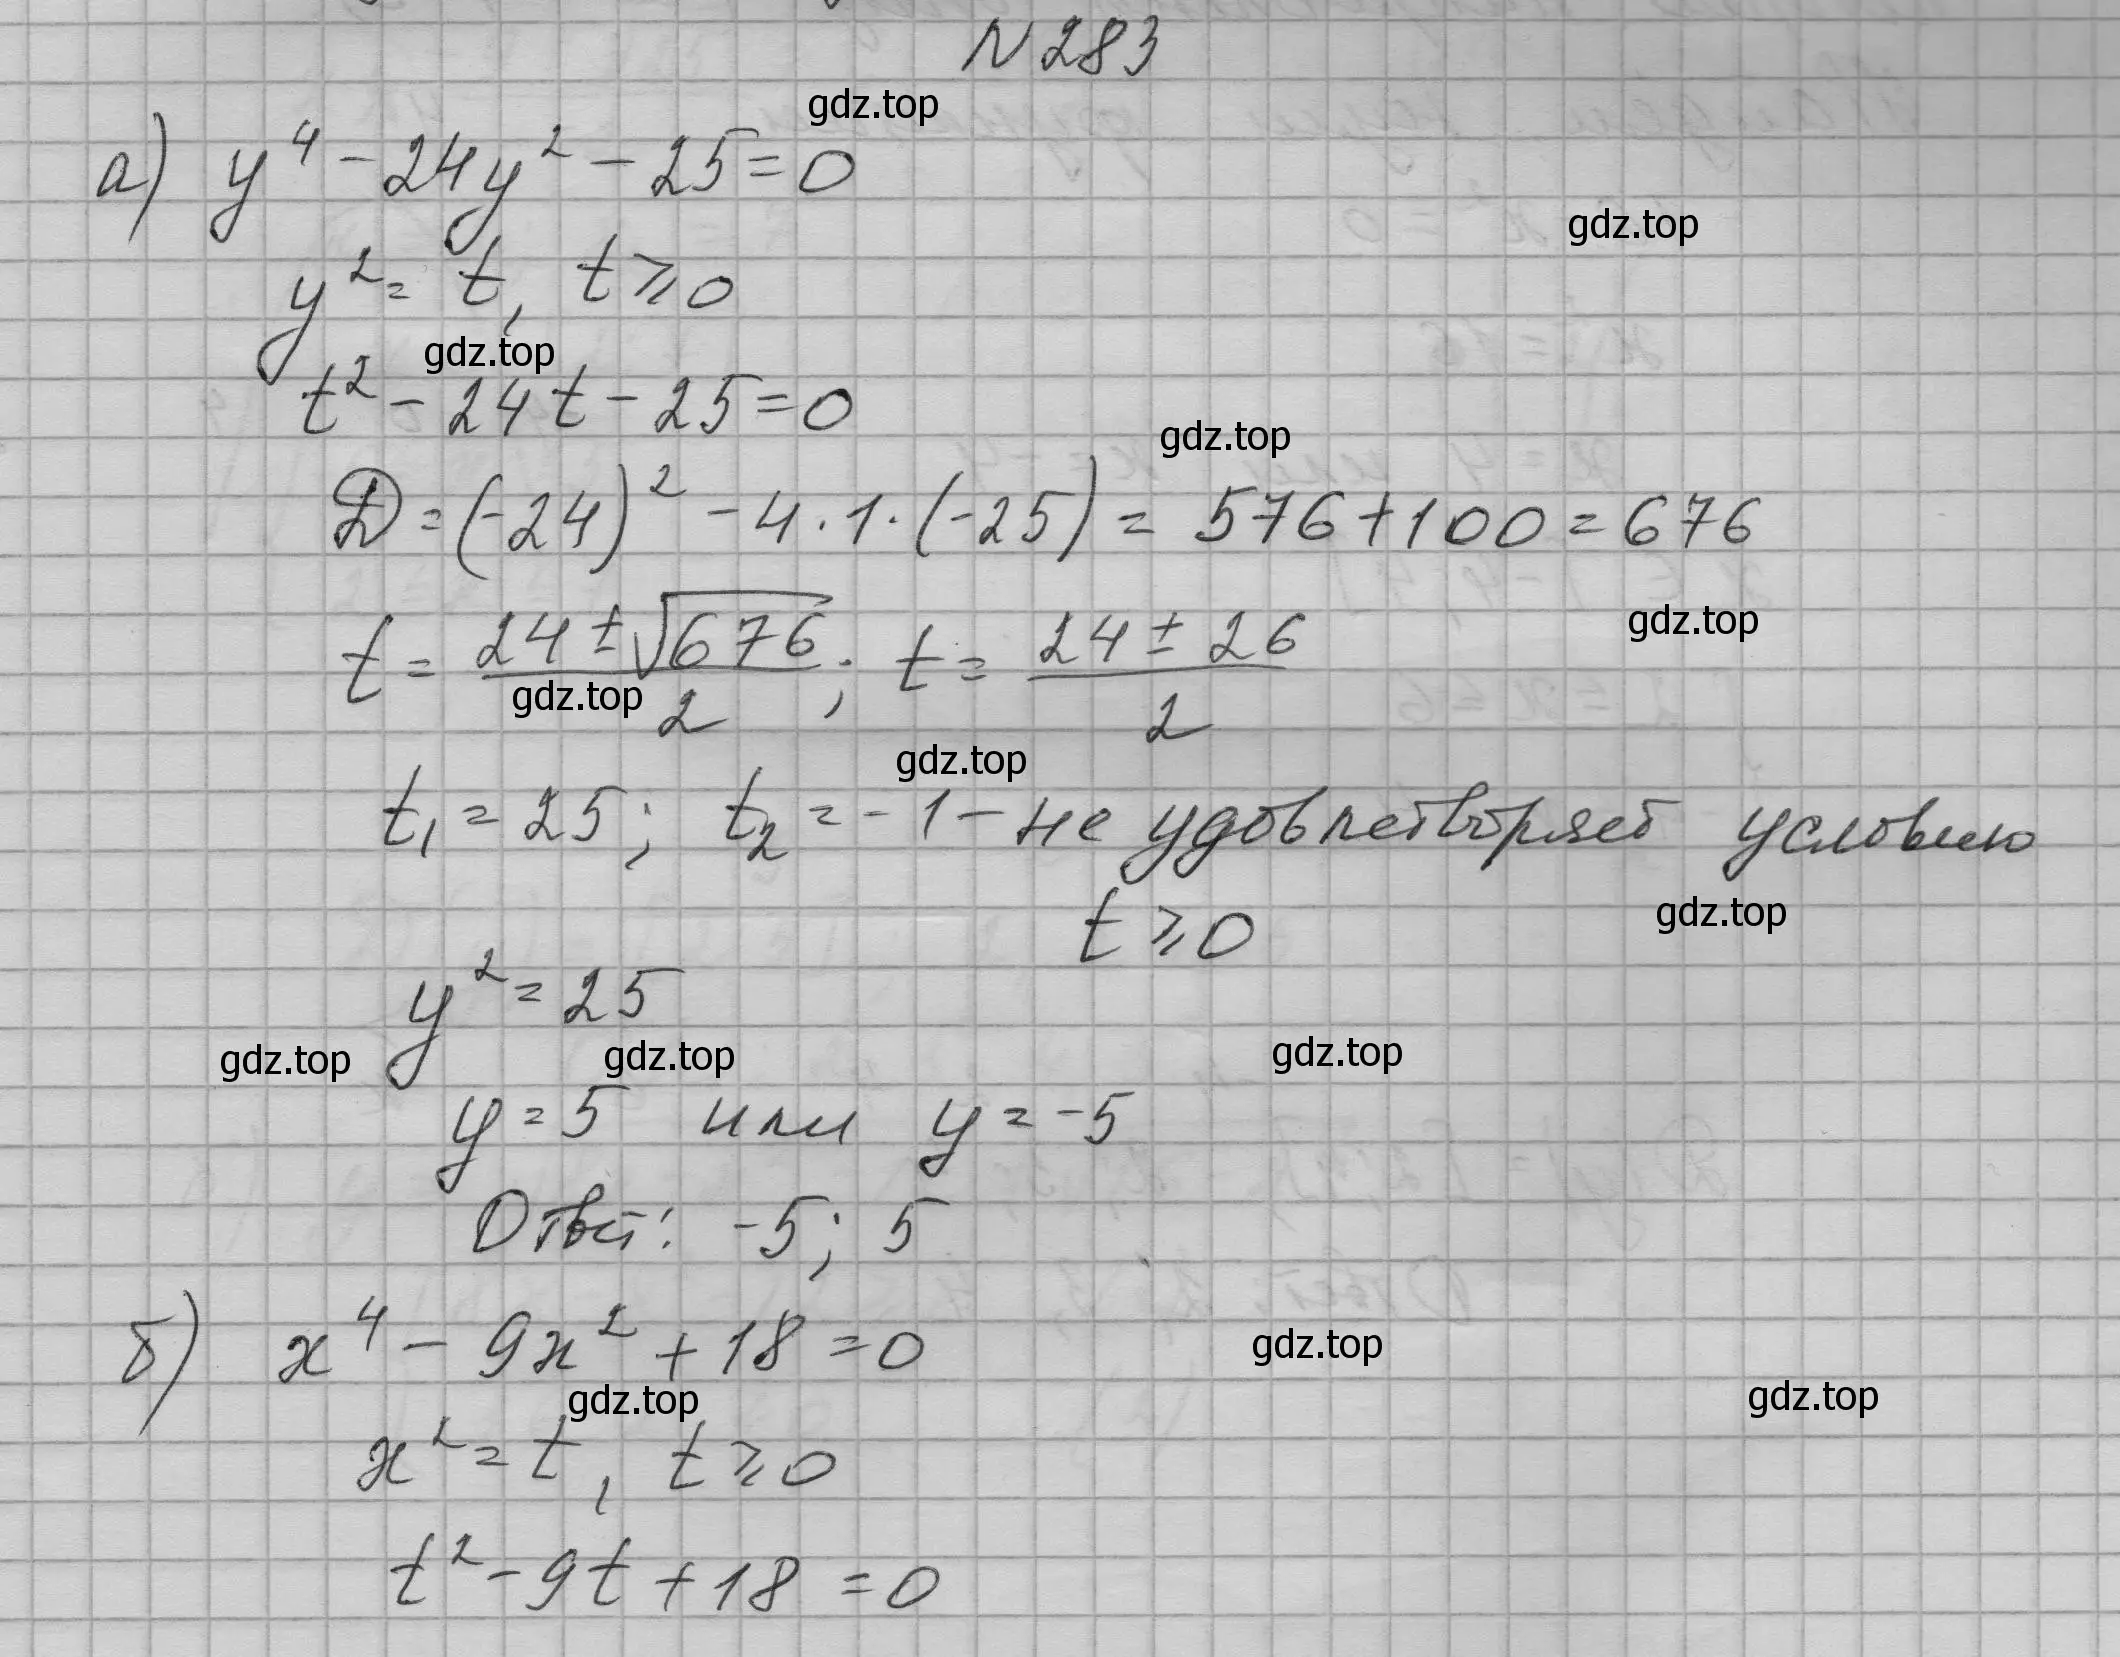 N 283
gdz.top
а) y⁴ - 24y² - 25 = 0
gdz.top
y² = t, t ⩾ 0
gdz.top
t² - 24t - 25 = 0
gdz.top
D = (-24)² - 4 · 1 · (-25) = 576 + 100 = 676
t = (24 ± √676)/2; t = (24 ± 26)/2
gdz.top
gdz.top
gdz.top
t₁ = 25; t₂ = -1 - не удовлетворяет условию
t ⩾ 0
gdz.top
y² = 25
gdz.top gdz.top gdz.top
y = 5 или y = -5
Ответ: -5; 5
б) x⁴ - 9x² + 18 = 0
gdz.top
gdz.top gdz.top
x² = t, t ⩾ 0
t² - 9t + 18 = 0